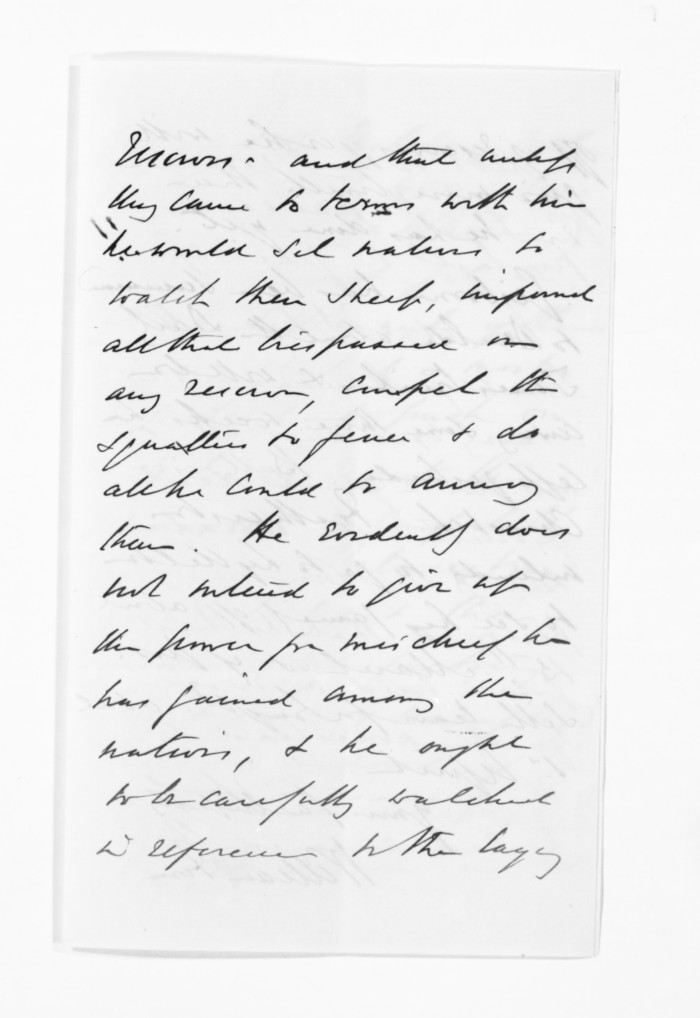 reserves - and that unless
they came to terms with him
he would set natives to
watch their sheep, impound
all that trespassed on
any reserve, compel the
squatters to fence & do
all he could to annoy
them. He evidently does
not intend to give up
the power for mischief he
has gained among the
natives, & he ought
to be carefully watched
in reference to the